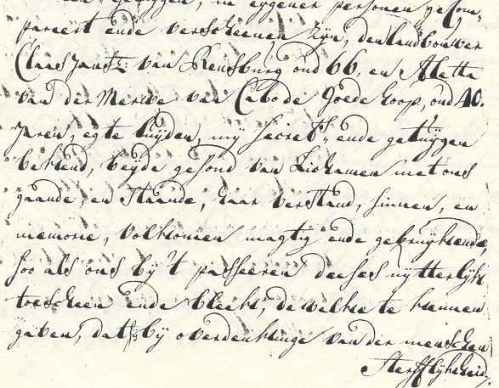 getuijgen, in eijgener persoonen gecom,
pareert ende verscheenen zijn, den landbouwer
Claas Jansz: van Rensburg oud 66. en Aletta
van der Merwe van Cabo de Goede Hoop, oud 40.
Jaren, egte luijden, mij Secret:s ende getuijgen
bekend, beijde gesond van Lichamen met ons
gaande, en Staande, haar verstand, sinnen, en
memorie, volkomen magtig ende gebruijkende,
soo als ons bij 't passeeren deeses uijtterlijk
toescheen ende bleeke, dewelke te kennen
gaven, dat bij overdenkinge van der menschen
Sterfflijkheid